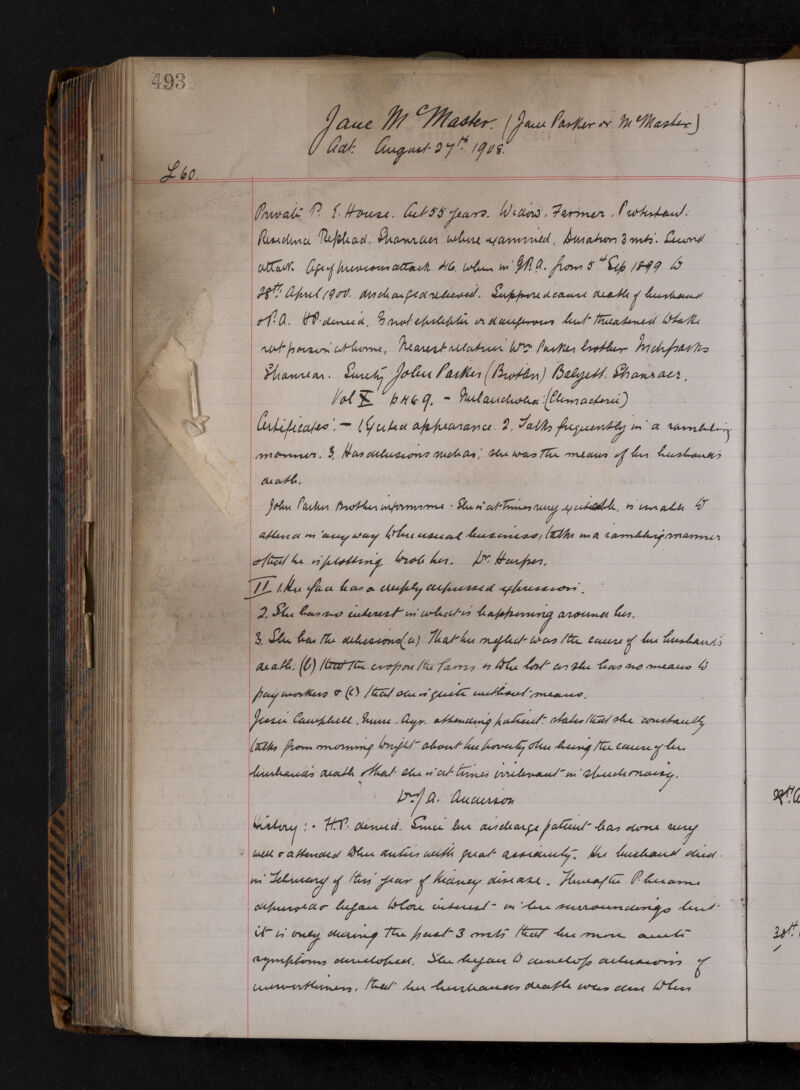 493
Jane McMaster. (Jane Parker or McMaster)
Adt. August 27th 1908.
£60.
Private P. E. House. Aet 55 years. Widow. Farmer. Protestant.
Residence Rephad. Stranraer where examined. Duration 3 mts. Second
attack. Age of previous attack 46. when in G.R.A. from 5th Sep 1899 to
28th April 1900. discharged relieved. Supposed cause death of husband
& P.A. H.P. denied. Is not epileptic or dangerous but threatened to take
rat poison at home. Nearest relative Wm Parker brother
Stranraer. Surety John Parker (Brother) Stranraer.
Vol X p 469. - Melancholia (Climacteric)
Certificates: - 1 Excited appearance. 2. Talks frequently in a rambling
manner. 3. Has delusions such as; she was the means of her husband's
death.
John Parker Brother informs me. She is at times very excitable, is unable to
attend in any way to her usual business, talks in a rambling manner
& that he is plotting to rob her. Dr. Harper.
II 1. Her face has a deeply depressed expression.
2. She has no interest in what is happening around her.
3. She has the delusions (a) That her neglect was the cause of her husband's
death. (b) that the crop on the farm is to be lost as she has no means to
pay workers & (c) that she is quite without means.
Jessie Campbell. Nurse. Ayr. attending patient states that she constantly
talks from morning to night about her poverty, she being the cause of her
husband's death & that she is at times irrelevant in speech & noisy.
Dr J A. Anderson
History: - H.P. denied. Since her discharge patient has done very
well & attended to her duties with great assiduity. Her husband died
in February of this year of kidney disease. Thereafter P. became
depressed & began to lose interest in her surroundings but
it is only during the past 3 mts that her more acute
symptoms developed. She began to develop delusions of
unworthiness, that her husbands death was due to her
30th